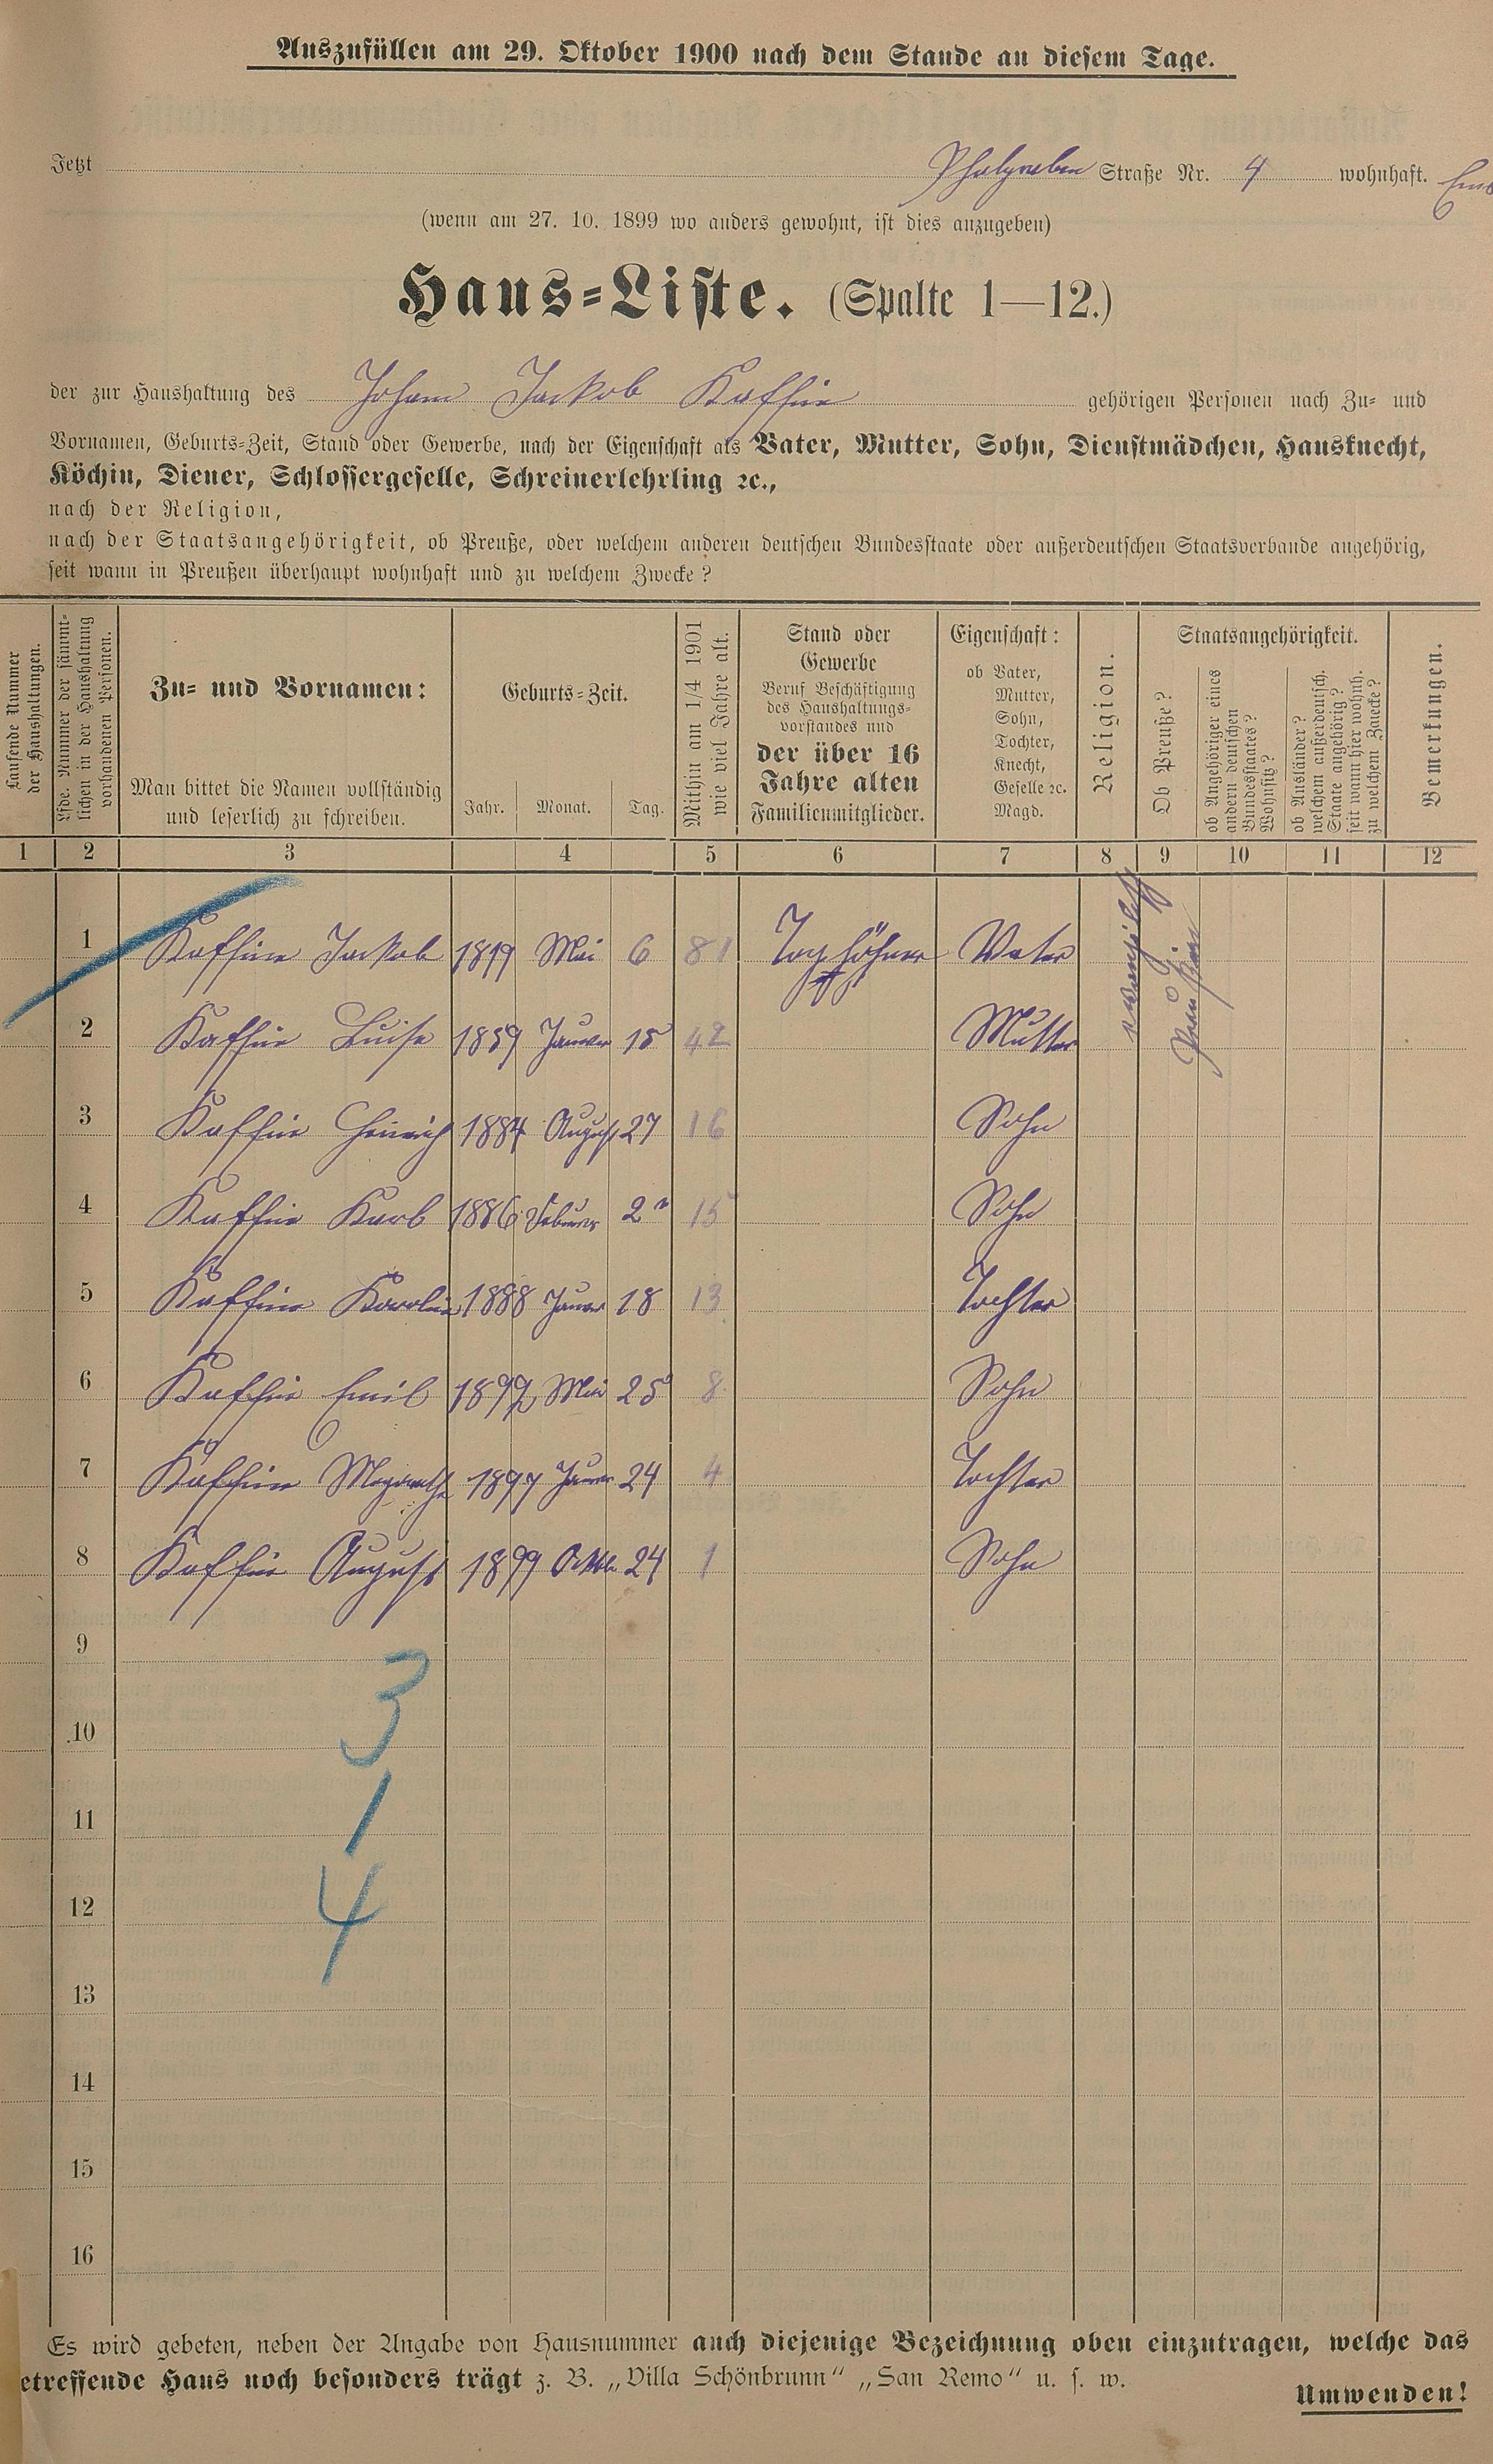 Auszufüllen am 29. Oktober 1900 nach dem Stande an diesem Tage.
Jetzt Pfalgraben Straße Nr. 4 wohnhaft. Ems
(wenn am 27. 10. 1899 wo anders gewohnt, ist dies anzugeben)
Haus-Liste. (Spalte 1—12.)
der zur Haushaltung des Johann Jackob Kaffine gehörigen Personen nach Zu- und
Vornamen, Geburts-Zeit, Stand oder Gewerbe, nach der Eigenschaft als Vater, Mutter, Sohn, Dienstmädchen, Hausknecht,
Köchin, Diener, Schlossergeselle, Schreinerlehrling ꝛc.,
nach der Religion,
nach der Staatsangehörigkeit, ob Preuße, oder welchem anderen deutschen Bundesstaate oder außerdeutschen Staatsverbande angehörig,
seit wann in Preußen überhaupt wohnhaft und zu welchem Zwecke?
Laufende Nummer
der Haushaltungen.
Lfde. Nummer der sämmt-
lichen in der Haushaltung
vorhandenen Personen.
Zu- und Vornamen:
Man bittet die Namen vollständig
und leserlich zu schreiben.
Geburts-Zeit.
Jahr. Monat. Tag.
Mithin am 1/4 1901
wie viel Jahre alt.
Stand oder
Gewerbe
Beruf Beschäftigung
des Haushaltungs-
vorstandes und
der über 16
Jahre alten
Familienmitglieder.
Eigenschaft:
ob Vater,
Mutter,
Sohn,
Tochter,
Knecht,
Geselle ꝛc.
Magd.
Religion.
Staatsangehörigkeit.
Ob Preuße?
ob Angehöriger eines
andern deutschen
Bundesstaates?
Wohnsitz?
ob Ausländer?
welchem außerdeutsch.
Staate angehörig?
seit wann hier wohnh.
zu welchem Zwecke?
Bemerkungen.
1 2 3 4 5 6 7 8 9 10 11 12
1 Kaffine Jackob 1819 Mai 6 81 Taglöhner Vater
2 Kaffine Luise 1859 Januar 15 42 Mutter
3 Kaffine Heinrich 1884 August 27 16 Sohn
4 Kaffine Karl 1886 Februar 2 15 Sohn
5 Kaffine Karolin 1888 Januar 18 13 Tochter
6 Kaffine Emil 1892 Mai 25 8 Sohn
7 Kaffine 1897 Januar 24 4 Tochter
8 Kaffine August 1899 24 1 Sohn
9
10
11
12
13
14
15
16
3
1
4
Es wird gebeten, neben der Angabe von Hausnummer auch diejenige Bezeichnung oben einzutragen, welche das
etreffende Haus noch besonders trägt z. B. „Villa Schönbrunn“ „San Remo“ u. s. w.
Umwenden!